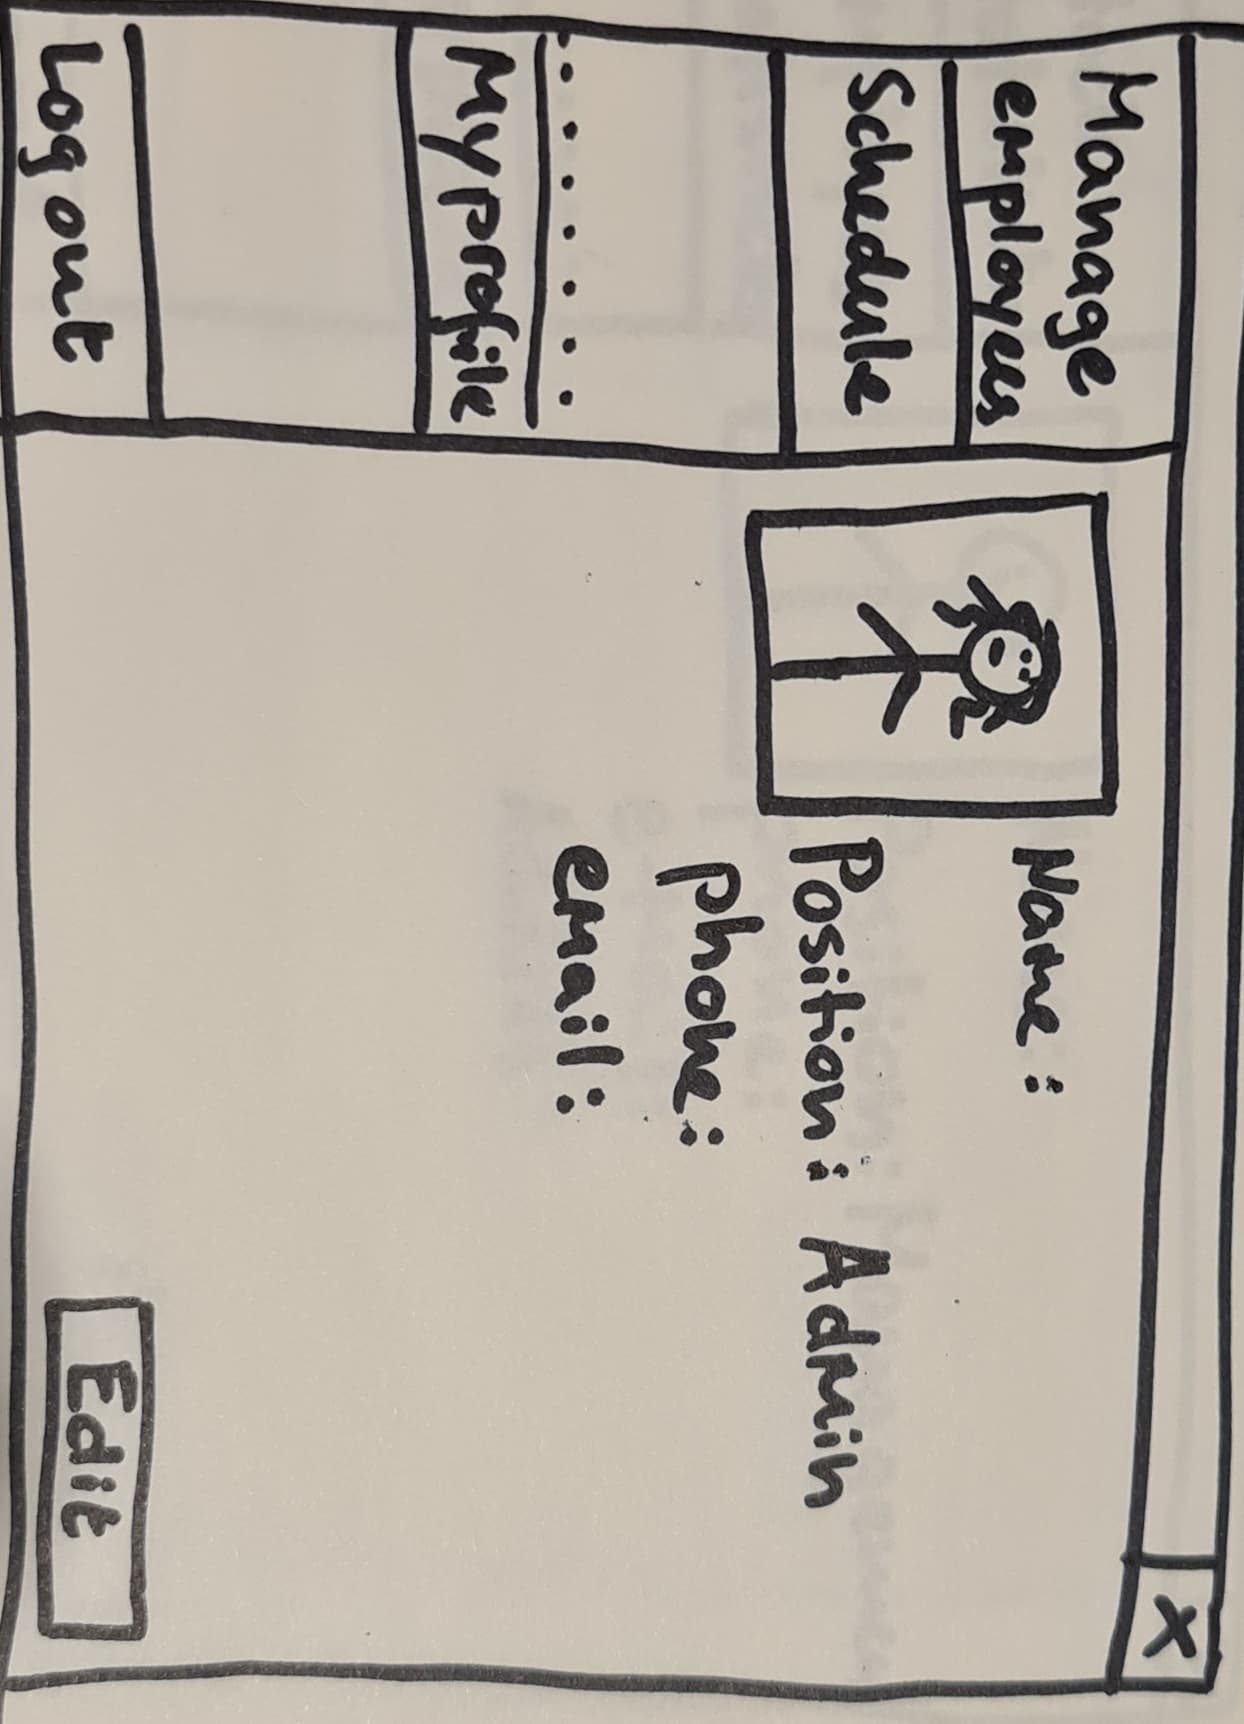 X
Manage
employees
Schedule
My profile
Log out
Name:
Position: Admin
phone:
email:
Edit